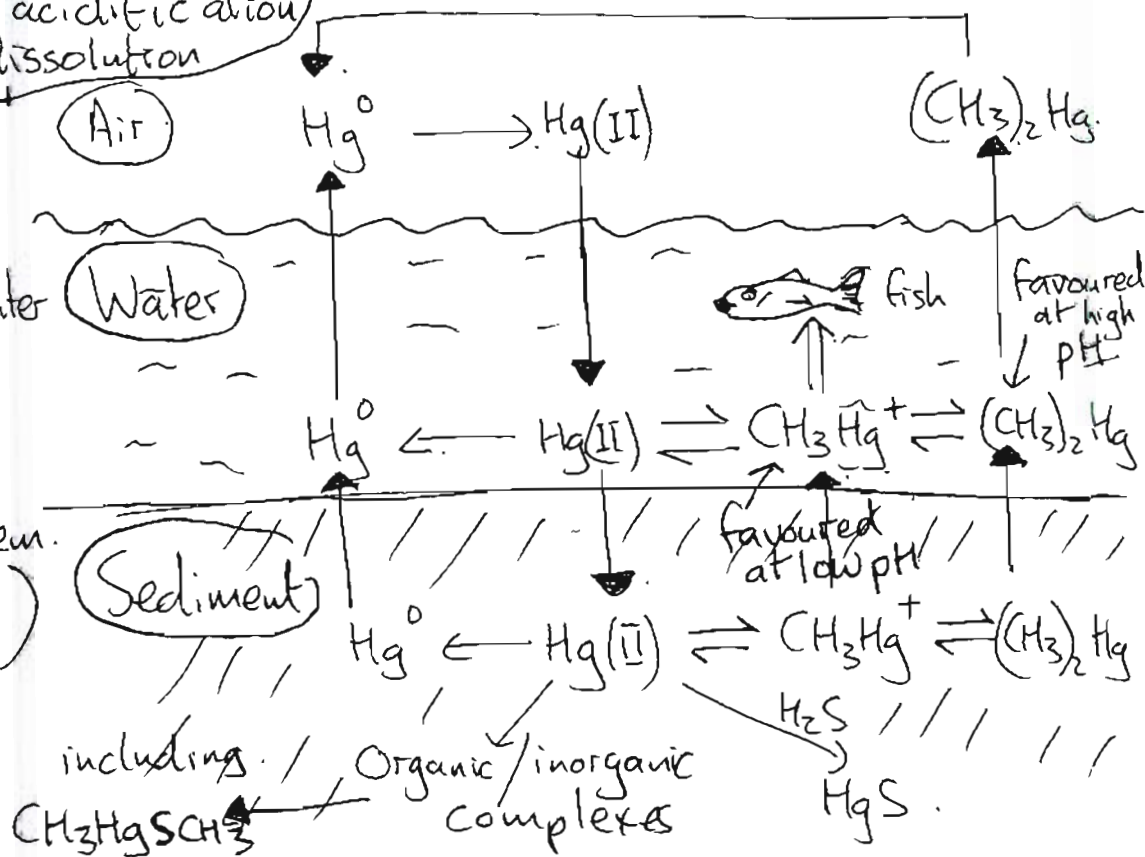 acidification
dissolution
Air
Hg⁰ → Hg(II)
(CH3)2Hg.
Water
fish
favoured
at high
pH
Hg⁰ ← Hg(II) ⇌ CH3Hg+ ⇌ (CH3)2Hg
favoured
at low pH
Sediment
Hg⁰ ← Hg(II) ⇌ CH3Hg+ ⇌ (CH3)2Hg
H2S
HgS.
including
Organic/inorganic
complexes
CH3HgSCH3